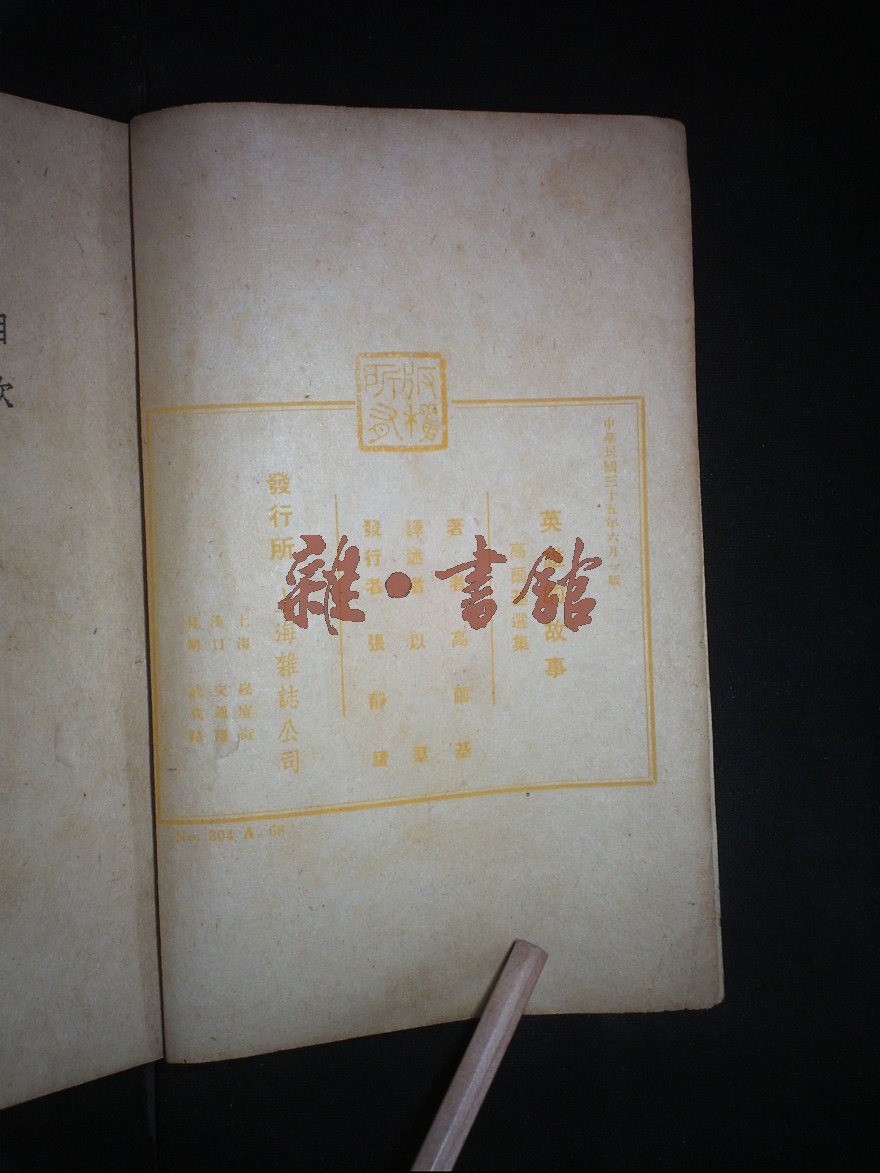 中華民國三十五年六月一版
英雄的故事
高爾基選集
著者 高爾基
譯述者 以羣
發行者 張靜廬
發行所 上海雜誌公司
上海
漢口 交通路
昆明
版權所有
No. 304 A. 68
目次
雜・書館